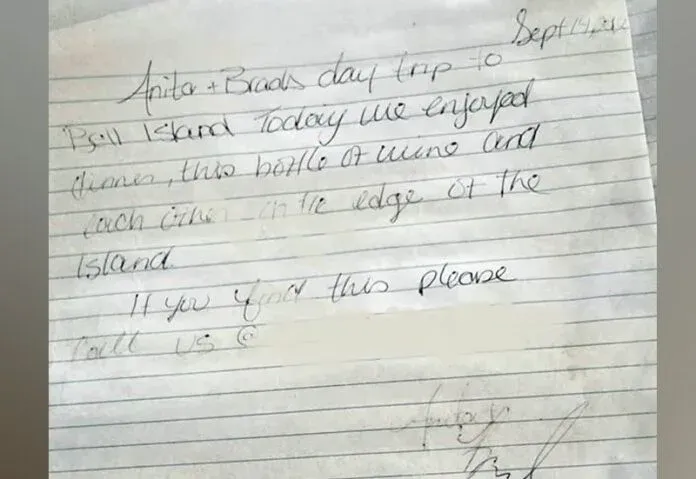 Sept 14, 2012
Anita + Brads day trip to
Bell Island Today we enjoyed
dinner, this bottle of wine and
each other on the edge of the
Island
If you find this please
Call us @
Anita